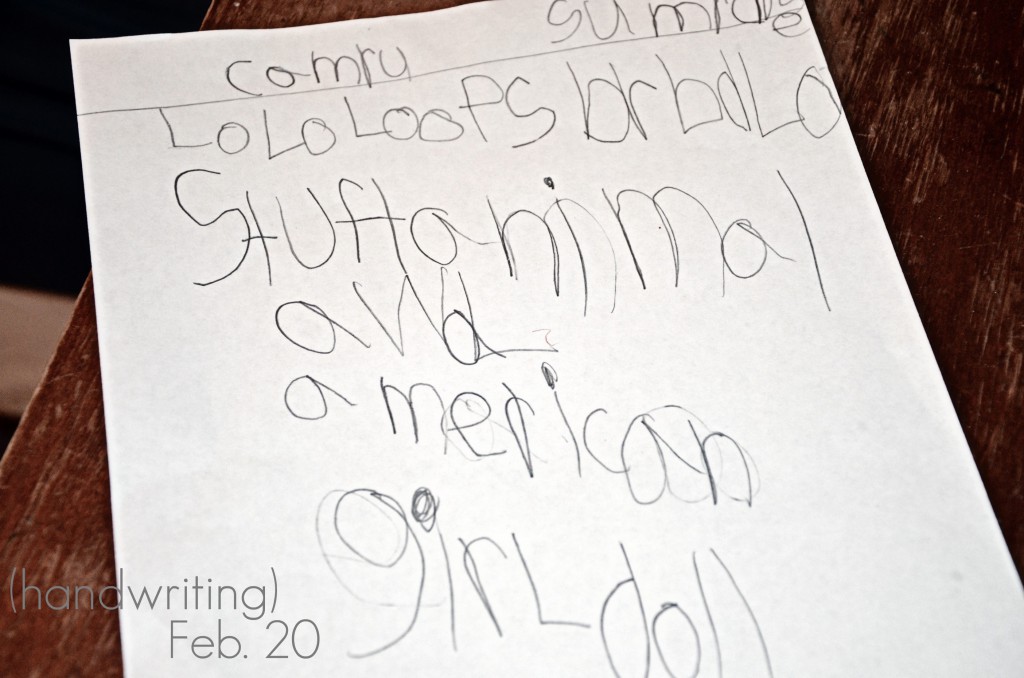 comru
LoLo LooPS brbdLo
Stuft animal
and
american
girL doll
(handwriting)
Feb. 20